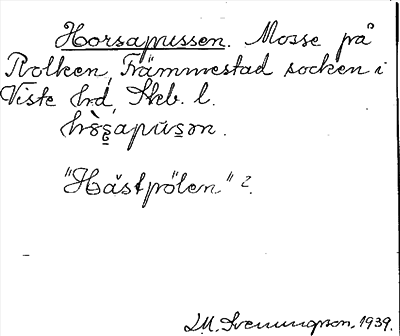 Horsapussen. Mosse på
Rolken, Främmestad socken i
Viste hrd, Skb. l.
"Hästpölen" ?
M. Svenungson. 1939.